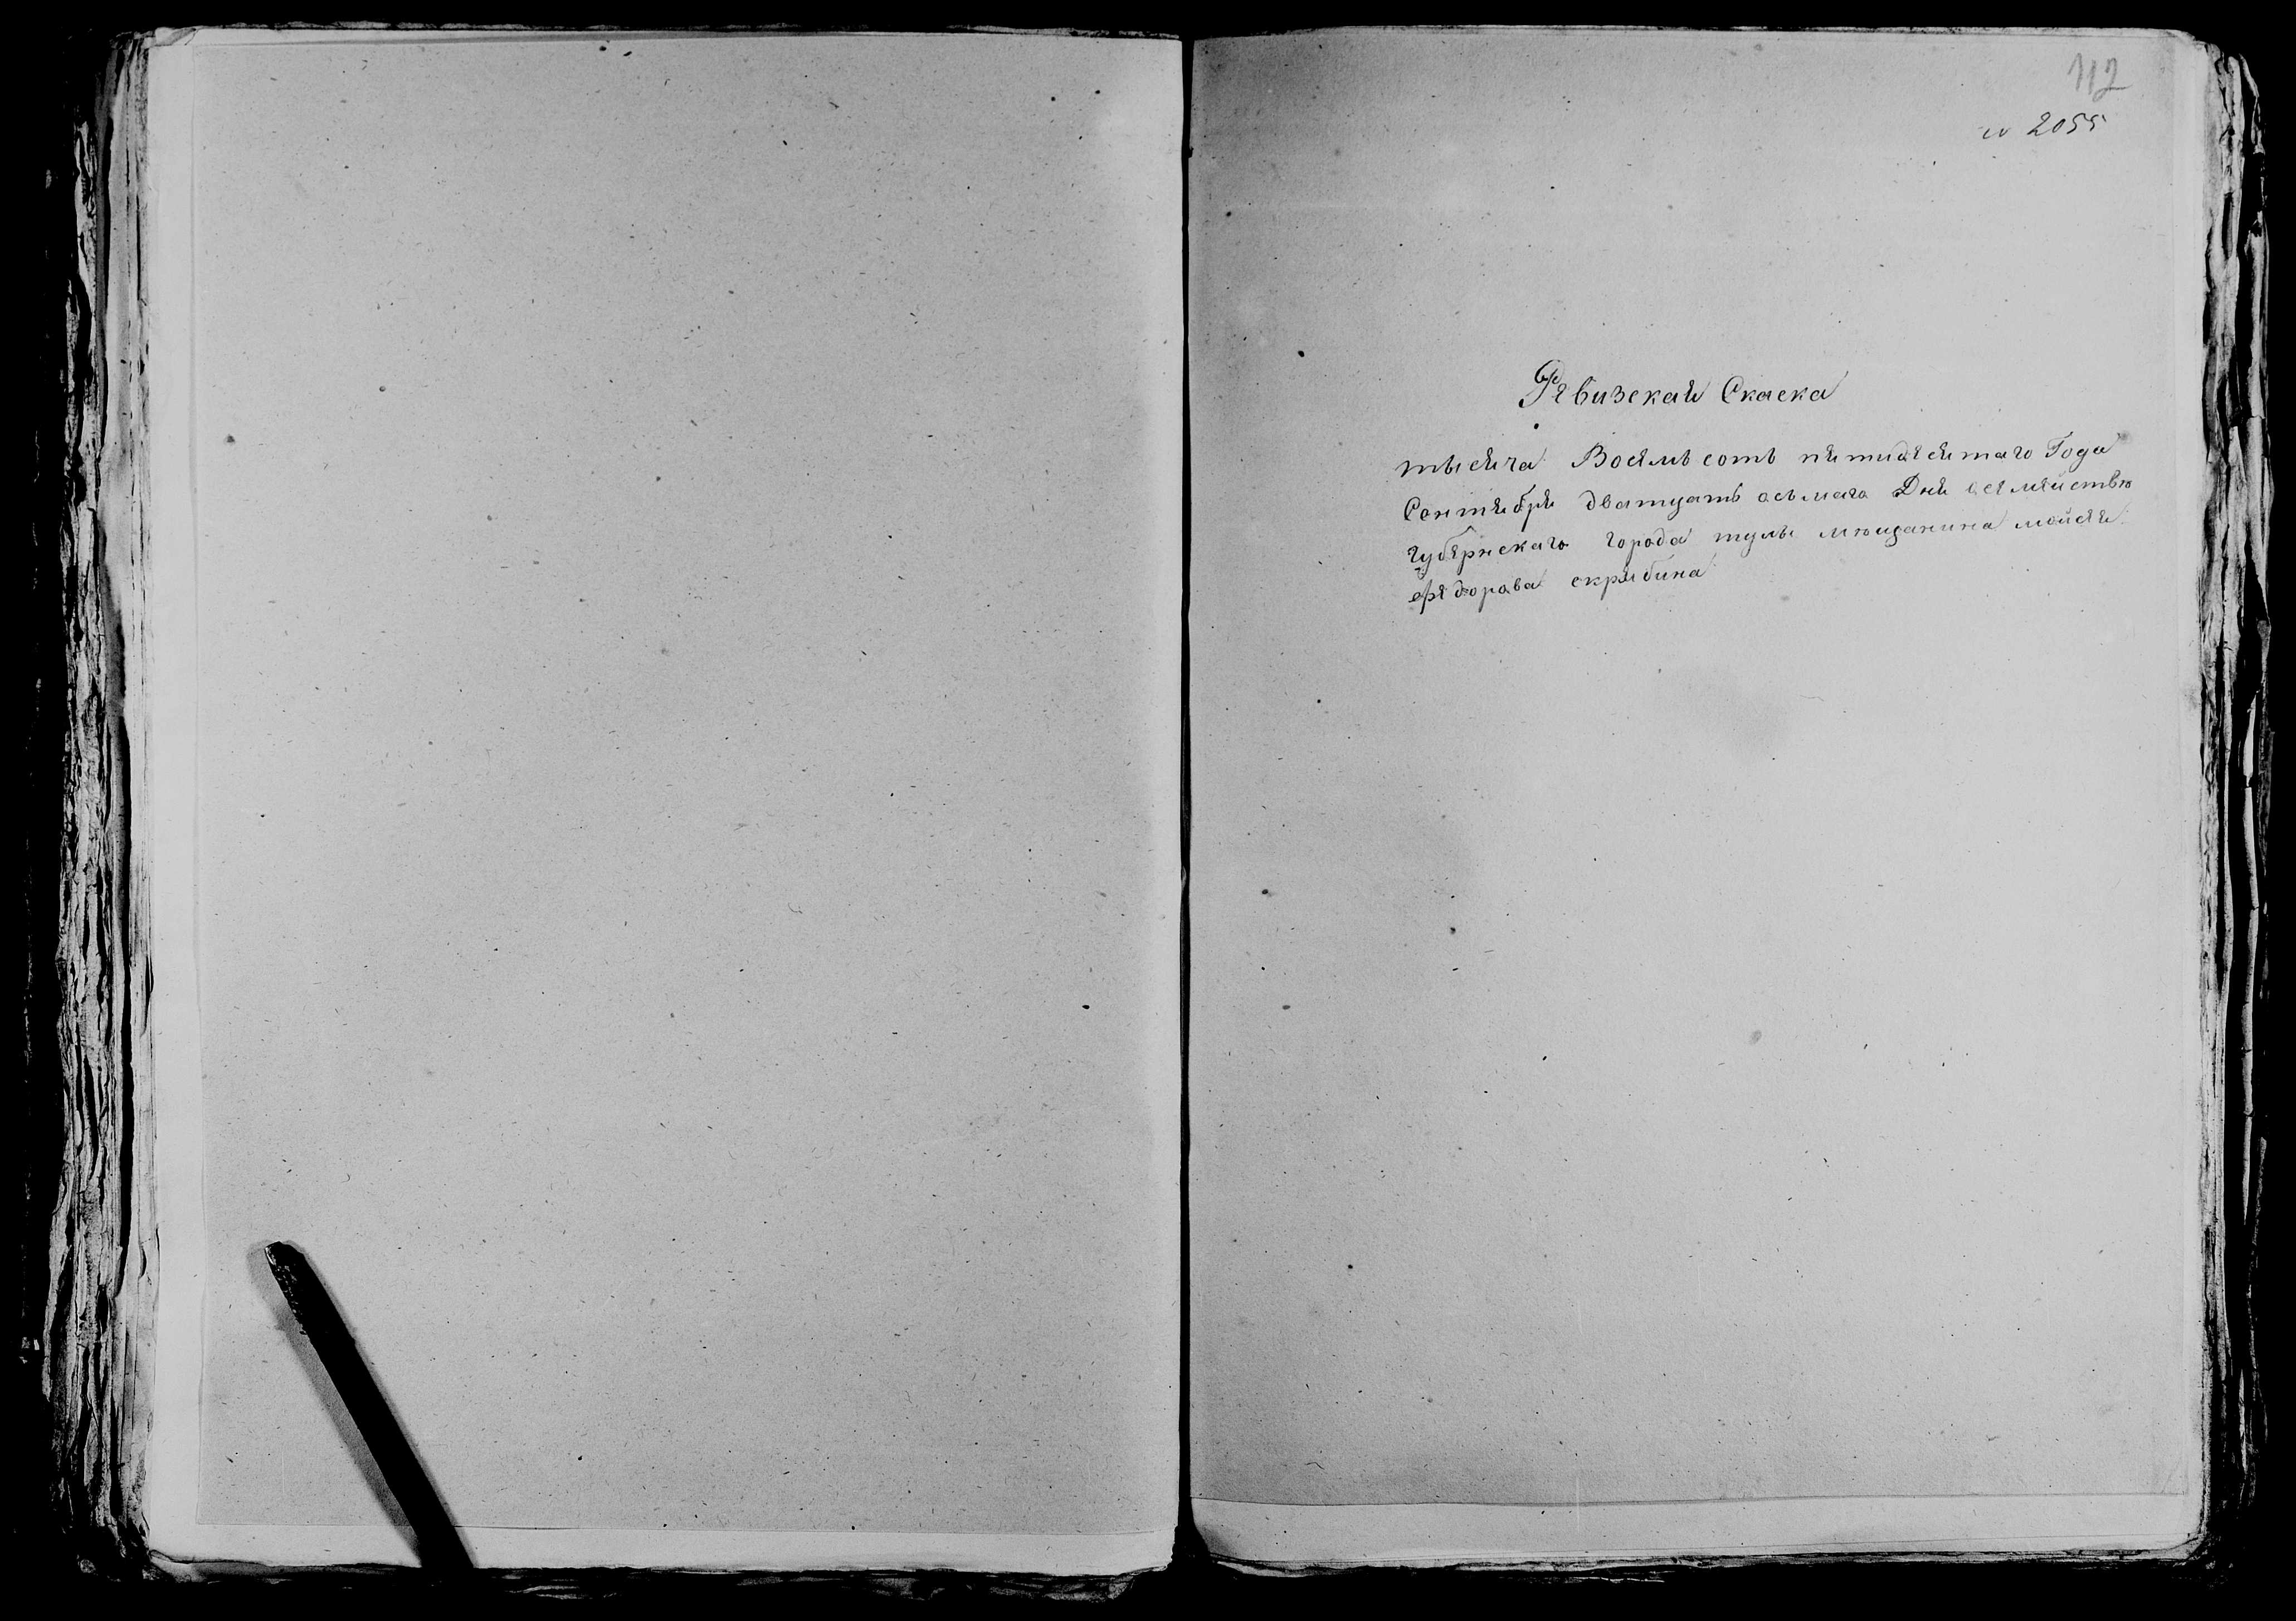 112
№ 2055
Ревизская Скаска
тысяча Восемь сотъ пятидесятаго Года
Сентября дватцать осьмаго Дня осемействе
губернскаго города тулы мещанина мойсея
федорава скрябина